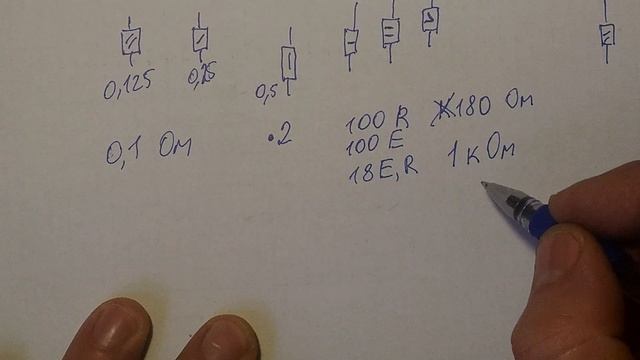 0,125 0,25 0,5
0,1 Ом .2 100 R 180 Ом
100 E
18E,R 1кОм